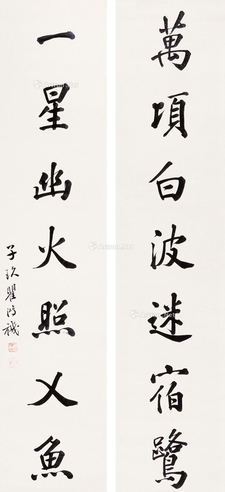 萬頃白波迷宿鷺
一星幽火照乂魚
子玖瞿鴻禨